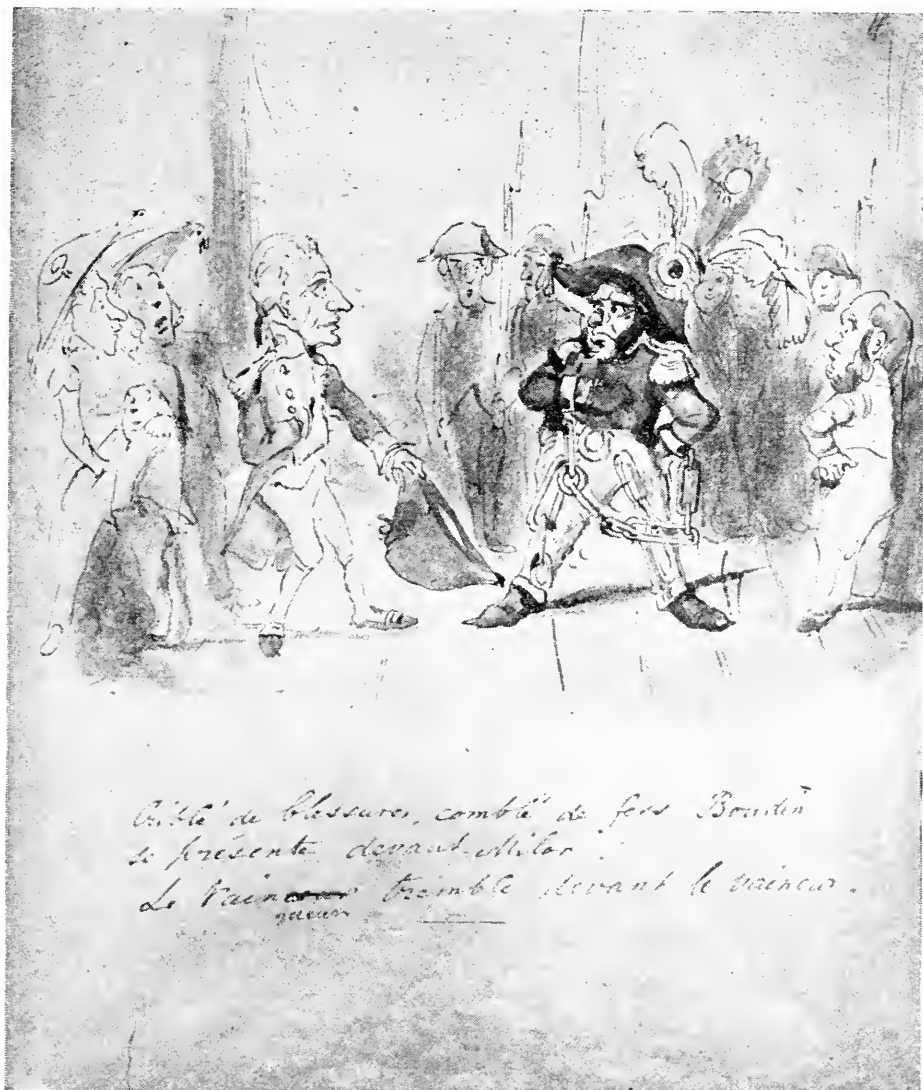 Criblé de blessures, comblé de fers Boudin
se présente devant Milor
Le Vain tremble devant le vaincu.
queur